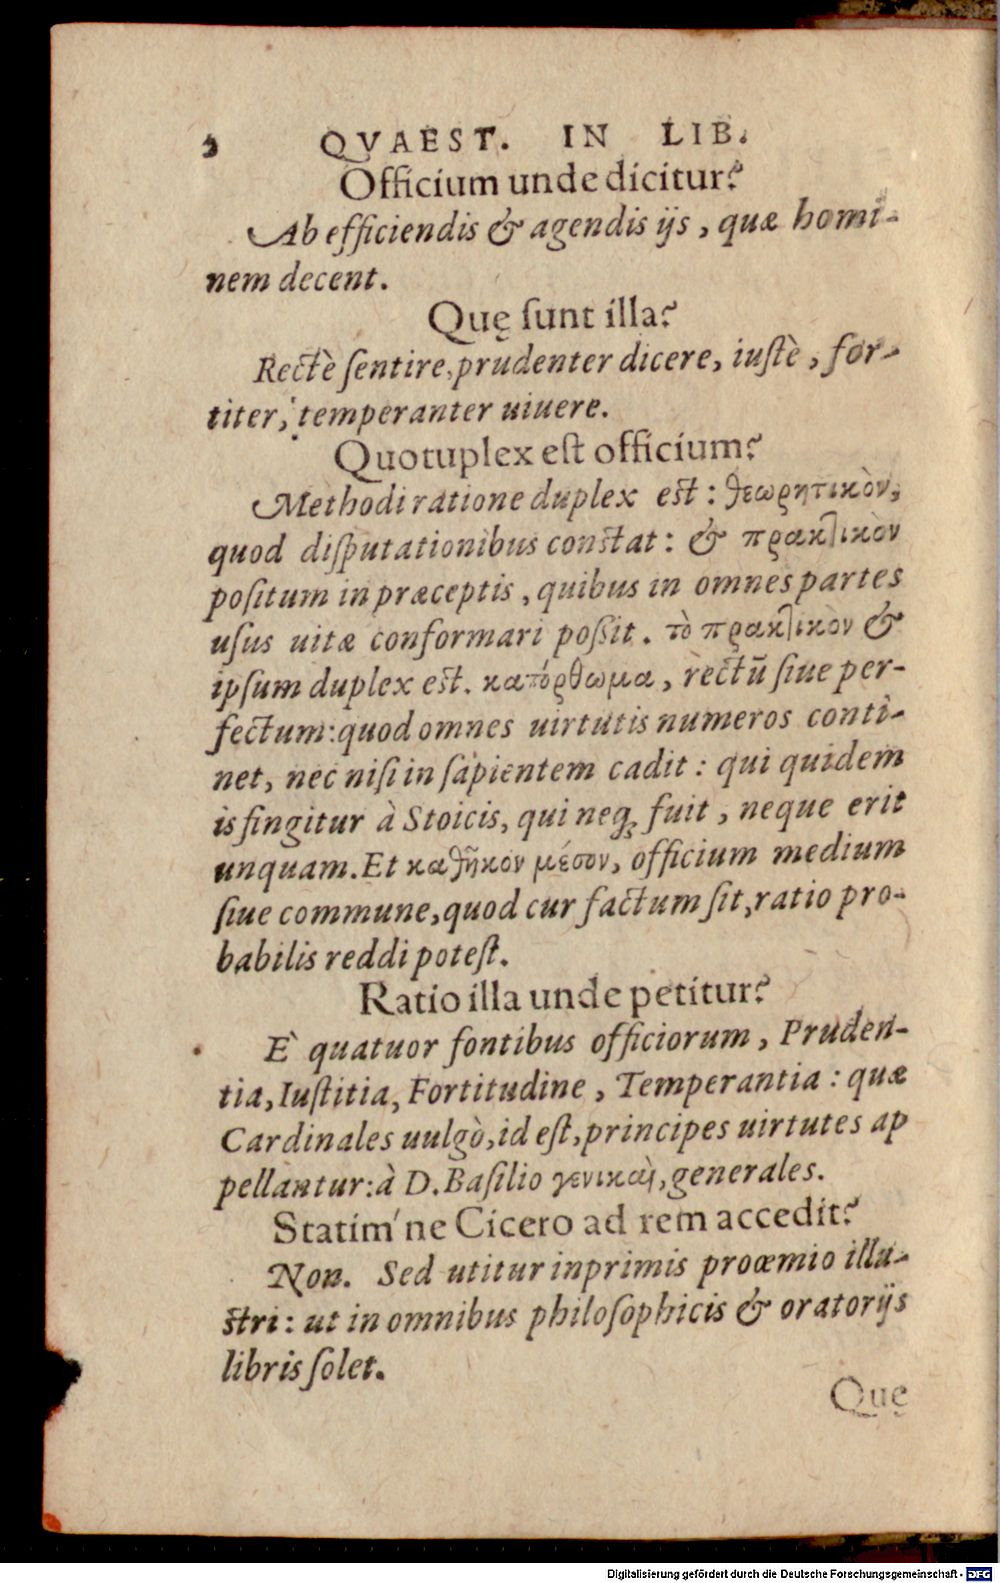 2 QVAEST. IN LIB.
Officium unde dicitur?
Ab efficiendis & agendis ijs, quæ homi-
nem decent.
Quę ſunt illa?
Rectè ſentire, prudenter dicere, iuſtè, for-
titer, temperanter uiuere.
Quotuplex eſt officium?
Methodi ratione duplex eſt: θεωρητικὸν,
quod diſputationibus conſtat: & πρακτικὸν
poſitum in præceptis, quibus in omnes partes
uſus uitæ conformari poſsit. τὸ πρακτικὸν &
ipſum duplex eſt. κατόρθωμα, rectū ſiue per-
fectum: quod omnes uirtutis numeros conti-
net, nec niſi in ſapientem cadit: qui quidem
is fingitur à Stoicis, qui neq; fuit, neque erit
unquam. Et καθῆκον μέσον, officium medium
ſiue commune, quod cur factum ſit, ratio pro-
babilis reddi poteſt.
Ratio illa unde petitur?
È quatuor fontibus officiorum, Pruden-
tia, Iuſtitia, Fortitudine, Temperantia: quæ
Cardinales uulgò, id eſt, principes uirtutes ap
pellantur: à D. Baſilio γενικαὶ, generales.
Statim'ne Cicero ad rem accedit?
Non. Sed utitur inprimis proœmio illu-
ſtri: ut in omnibus philoſophicis & oratorijs
libris ſolet.
Quę
Digitalisierung gefördert durch die Deutsche Forschungsgemeinschaft - DFG